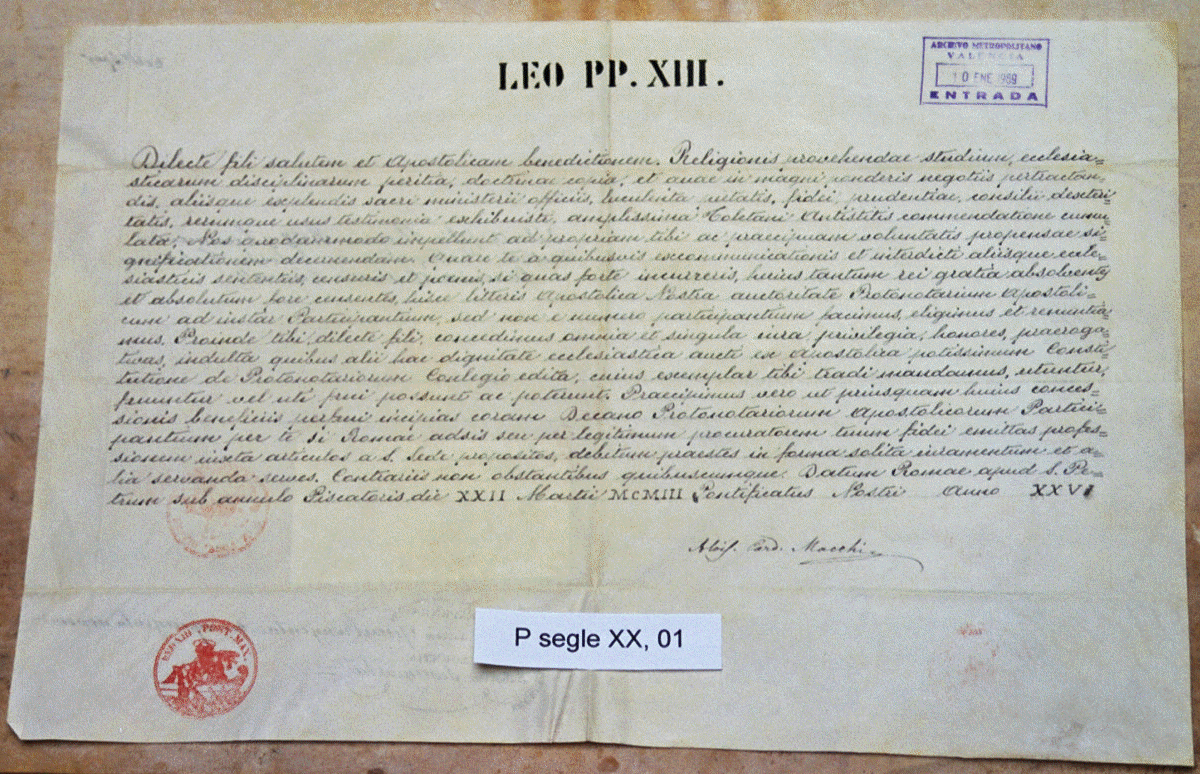 LEO PP. XIII.
ARCHIVO METROPOLITANO
VALENCIA
10 ENE 1969
ENTRADA
Dilecte fili salutem et Apostolicam benedictionem. Religionis provehendae studium, ecclesia=
sticarum disciplinarum peritia, doctrinae copia, et quae in magni ponderis negotiis pertractan=
dis, aliisque explendis sacri ministerii officiis, luculenta pietatis, fidei, prudentiae, consilii dexteri=
tatis, rerumque usus testimonia exhibuisti, amplissima Toletani Antistitis commendatione cumu=
lata, Nos quodammodo impellunt ad propriam tibi ac praecipuam voluntatis propensae si=
gnificationem decernendam. Quare te a quibusvis excommunicationis et interdicti aliisque eccle=
siasticis sententiis, censuris et poenis, si quas forte incurreris, huius tantum rei gratia absolventes
et absolutum fore censentes, hisce litteris Apostolica Nostra auctoritate Protonotarium Apostoli=
cum ad instar Participantium, sed non e numero participantium facimus, eligimus et renuntia=
mus. Proinde tibi, dilecte fili, concedimus omnia et singula iura privilegia, honores, praeroga=
tivas, indulta quibus alii hac dignitate ecclesiastica aucti ex Apostolica potissimum Consti=
tutione de Protonotariorum Conlegio edita, cuius exemplar tibi tradi mandamus, utuntur,
fruuntur vel uti frui possunt ac poterunt. Praecipimus vero ut priusquam huius conces=
sionis beneficiis perfrui incipias coram Decano Protonotariorum Apostolicorum Partici=
pantium per te si Romae adsis seu per legitimum procuratorem tuum fidei emittas profes=
sionem iuxta articulos a S. Sede propositos, debitum praestes in forma solita iuramentum et a=
lia servanda serves. Contrariis non obstantibus quibuscumque. Datum Romae apud S. Pe=
trum sub annulo Piscatoris die XXII Martii MCMIII Pontificatus Nostri Anno XXVI
Alois. Card. Macchi
LEO XIII PONT. MAX.
P segle XX, 01